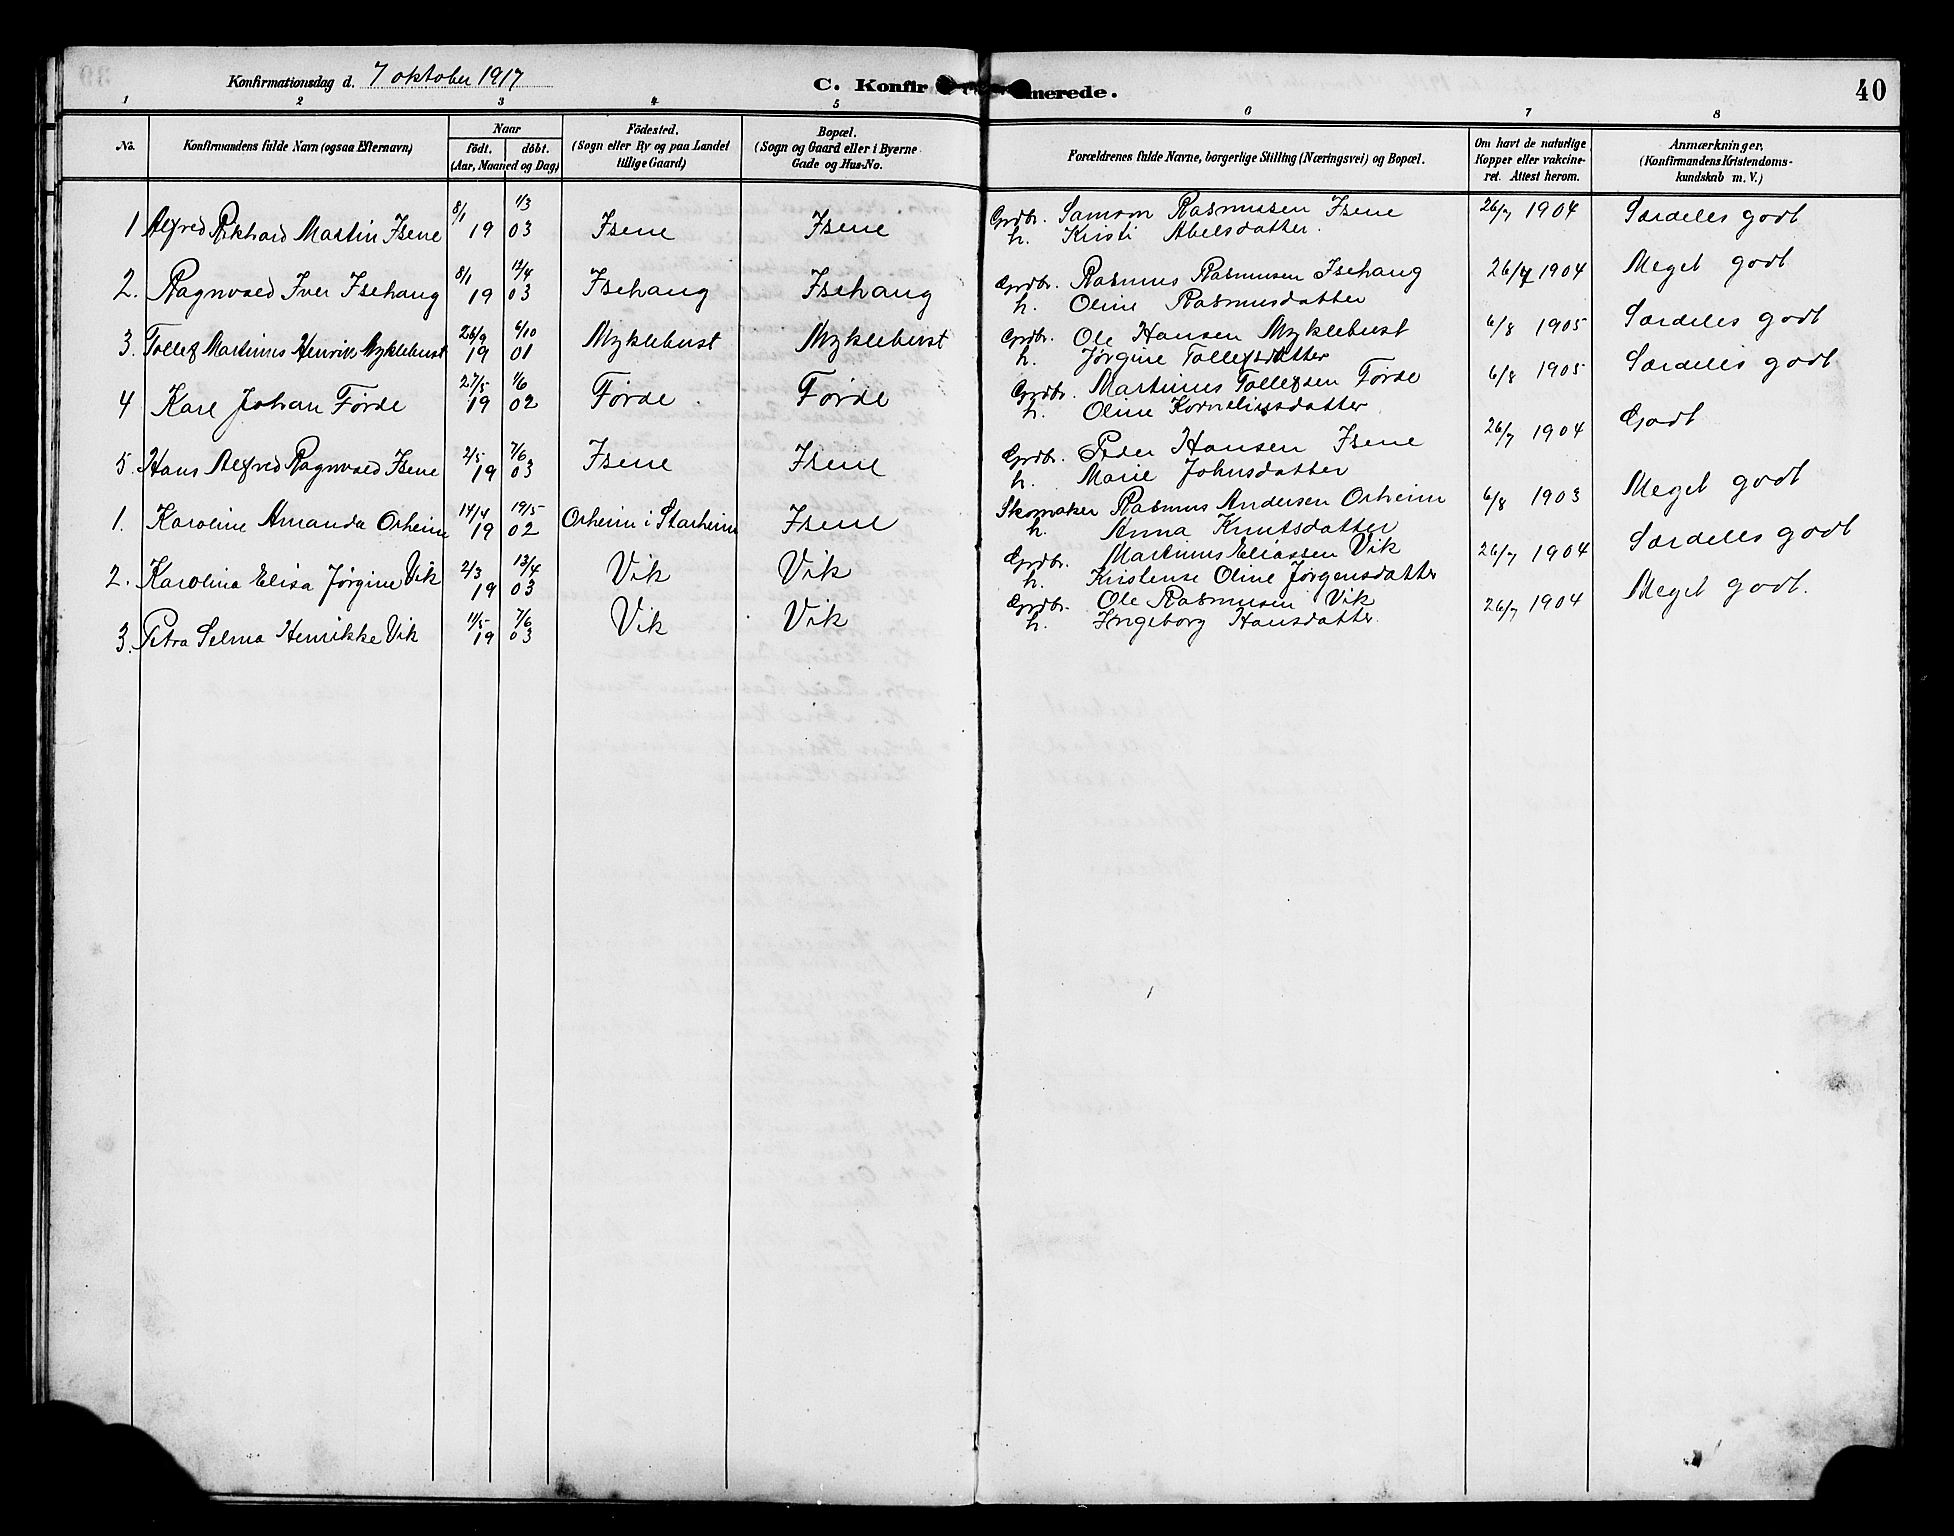 Konfirmationsdag d. 7 oktober 1917
C. Konfir
merede.
40
1 2 3 4 5 6 7 8
No.
Konfirmandens fulde Navn (ogsaa Efternavn)
Naar
födt. döbt.
(Aar, Maaned og Dag)
Födested.
(Sogn eller By og paa Landet
tillige Gaard)
Bopæl.
(Sogn og Gaard eller i Byerne
Gade og Hus-No.
Forældrenes fulde Navne, borgerlige Stilling (Næringsvei) og Bopæl.
Om havt de naturlige
Kopper eller vakcine-
ret. Attest herom.
Anmærkninger,
(Konfirmandens Kristendoms-
kundskab m. V.)
1 Alfred Rikhard Martin Isene 8/1 19 1/3 03 Isene Isene Grdbr. Samson Rasmussen Isene 26/7 1904 Særdeles godt
h. Kristi Abelsdatter.
2. Ragnvald Iver Isehaug 8/1 19 12/4 03 Isehaug Isehaug Grdbr. Rasmus Rasmusen Isehaug 26/7 1904 Meget godt
h. Oline Rasmusdatter
3. Tollef Martinus Henrik Myklebust 26/9 19 6/10 01 Myklebust Myklebust Grdbr. Ole Hansen Myklebust 6/8 1905 Særdeles godt
h. Jørgine Tollefsdatter
4 Karl Johan Førde 27/5 19 1/6 02 Førde. Førde Grdbr. Martinus Tollefsen Førde 6/8 1905 Særdeles godt
h. Oline Korneliusdatter
5. Hans Alfred Ragnvald Isene 2/5 19 7/6 03 Isene Isene Grdbr. Peder Hansen Isene 26/7 1904 Godt
h. Marie Johnsdatter
1. Karoline Amanda Orheim 14/4 19 19/5 02 Orheim i Starheim Isene Skomaker Rasmus Andersen Orheim 6/8 1903 Meget godt
h. Anna Knutsdatter
2. Karolina Elisa Jørgine Vik 2/3 19 13/4 03 Vik Vik Grdbr. Martinus Eliassen Vik 26/7 1904 Særdeles godt
h. Kristense Oline Jørgensdatter
3. Petra Selma Henrikke Vik 11/5 19 7/6 03 Vik Vik Grdbr. Ole Rasmusen Vik 26/7 1904 Meget godt.
h. Ingeborg Hansdatter.